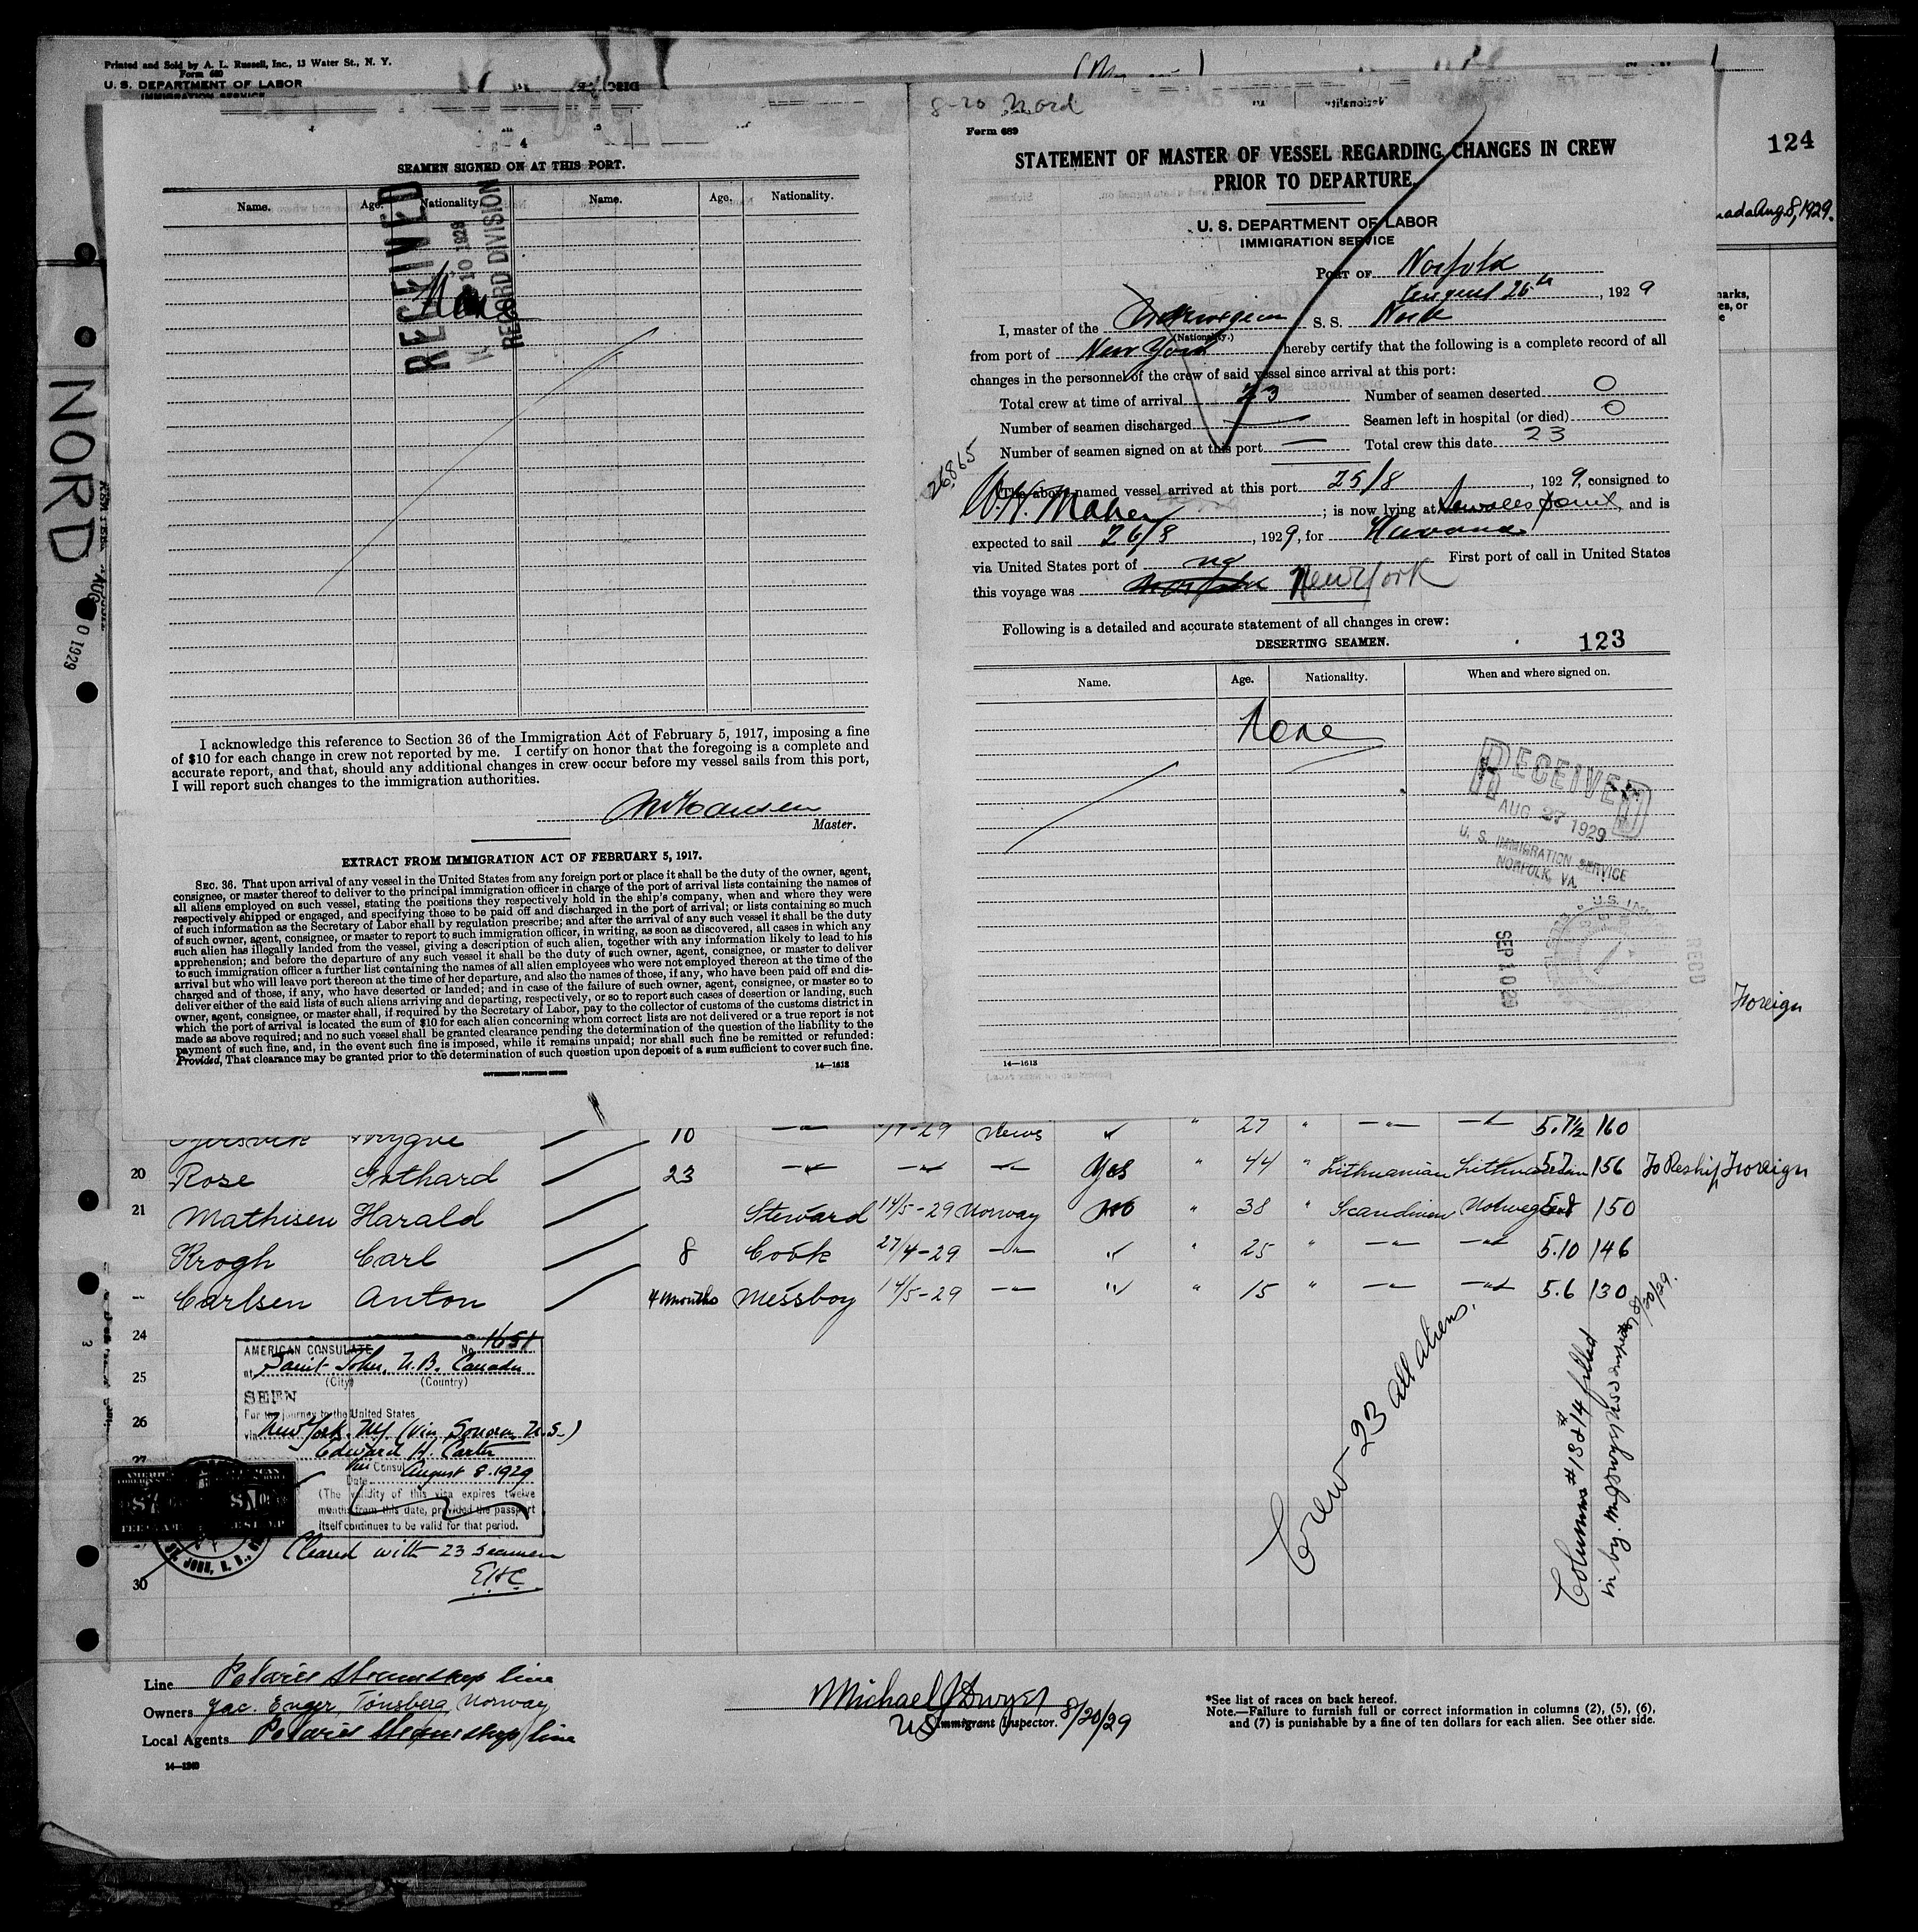 Printed and Sold by A. L. Russell, Inc., 13 Water St., N. Y.
Form 680
U. S. DEPARTMENT OF LABOR
IMMIGRATION SERVICE
124
Aug 8, 1929.
NORD
AUG 1929
4
SEAMEN SIGNED ON AT THIS PORT.
Name. Age. Nationality. Name. Age. Nationality.
RECEIVED
10 1929
RECORD DIVISION
None
I acknowledge this reference to Section 36 of the Immigration Act of February 5, 1917, imposing a fine
of $10 for each change in crew not reported by me. I certify on honor that the foregoing is a complete and
accurate report, and that, should any additional changes in crew occur before my vessel sails from this port,
I will report such changes to the immigration authorities.
Hansen
Master.
EXTRACT FROM IMMIGRATION ACT OF FEBRUARY 5, 1917.
SEC. 36. That upon arrival of any vessel in the United States from any foreign port or place it shall be the duty of the owner, agent,
consignee, or master thereof to deliver to the principal immigration officer in charge of the port of arrival lists containing the names of
all aliens employed on such vessel, stating the positions they respectively hold in the ship's company, when and where they were
respectively shipped or engaged, and specifying those to be paid off and discharged in the port of arrival; or lists containing so much
of such information as the Secretary of Labor shall by regulation prescribe; and after the arrival of any such vessel it shall be the duty
of such owner, agent, consignee, or master to report to such immigration officer, in writing, as soon as discovered, all cases in which any
such alien has illegally landed from the vessel, giving a description of such alien, together with any information likely to lead to his
apprehension; and before the departure of any such vessel it shall be the duty of such owner, agent, consignee, or master to deliver
to such immigration officer a further list containing the names of all alien employees who were not employed thereon at the time of the
arrival but who will leave port thereon at the time of her departure, and also the names of those, if any, who have been paid off and dis-
charged and of those, if any, who have deserted or landed; and in case of the failure of such owner, agent, consignee, or master so to
deliver either of the said lists of such aliens arriving and departing, respectively, or so to report such cases of desertion or landing, such
owner, agent, consignee, or master shall, if required by the Secretary of Labor, pay to the collector of customs of the customs district in
which the port of arrival is located the sum of $10 for each alien concerning whom correct lists are not delivered or a true report is not
made as above required; and no such vessel shall be granted clearance pending the determination of the question of the liability to the
payment of such fine, and, in the event such fine is imposed, while it remains unpaid; nor shall such fine be remitted or refunded:
Provided, That clearance may be granted prior to the determination of such question upon deposit of a sum sufficient to cover such fine.
14—1613
GOVERNMENT PRINTING OFFICE
8-20 Nord
Form 689
STATEMENT OF MASTER OF VESSEL REGARDING CHANGES IN CREW
PRIOR TO DEPARTURE.
U. S. DEPARTMENT OF LABOR
IMMIGRATION SERVICE
PORT OF Norfolk
August 26th, 1929
I, master of the Norwegian S. S. Nord
(Nationality.)
from port of New York hereby certify that the following is a complete record of all
changes in the personnel of the crew of said vessel since arrival at this port:
Total crew at time of arrival 23 Number of seamen deserted 0
Number of seamen discharged — Seamen left in hospital (or died) 0
Number of seamen signed on at this port — Total crew this date 23
26865
The above-named vessel arrived at this port 25/8, 1929, consigned to
W. H. Maher; is now lying at Sewalls point, and is
expected to sail 26/8, 1929, for Havana
via United States port of no First port of call in United States
this voyage was Norfolk New York
Following is a detailed and accurate statement of all changes in crew:
DESERTING SEAMEN.
123
Name. Age. Nationality. When and where signed on.
None
RECEIVED
AUG 27 1929
U. S. IMMIGRATION SERVICE
NORFOLK, VA.
SEP 10 29
RECD
14—1613
Foreign
Trygve 10 —"— -29 News " " 27 " —"— —"— 5.7½ 160
20 Rose Gothard 23 —"— —"— —"— Yes " 44 " Lithuanian Lithuanian 5.7 156 To Reship Foreign
21 Mathisen Harald Steward 14/5-29 Norway No " 38 " Scandinav Norwegian 5.8 150
Krogh Carl 8 Cook 27/4-29 —"— " " 25 " —"— —"— 5.10 146
Carlsen Anton 4 months Messboy 14/5-29 —"— " " 15 " —"— —"— 5.6 130
24
25
26
27
30
AMERICAN CONSULATE No. 1651
at Saint John, N.B. Canada
(City) (Country)
SEEN
For the journey to the United States
via New York, N.Y. (via Sonora N.S.)
Edward H. Carter
Vice Consul
Date August 8, 1929
(The validity of this visa expires twelve
months from this date, provided the passport
itself continues to be valid for that period.
ST. JOHN, N. B.,
Cleared with 23 seamen
EHC
Crew 23 all aliens.
Columns #13 & #14 filled
in by M J Dwyer 8/20/29.
Line Polaris Steamship line
Owners Jac. Enger, Tönsberg, Norway
Local Agents Polaris Steamship line
Michael J Dwyer
US Immigrant Inspector. 8/20/29
*See list of races on back hereof.
Note.—Failure to furnish full or correct information in columns (2), (5), (6),
and (7) is punishable by a fine of ten dollars for each alien. See other side.
14—1240